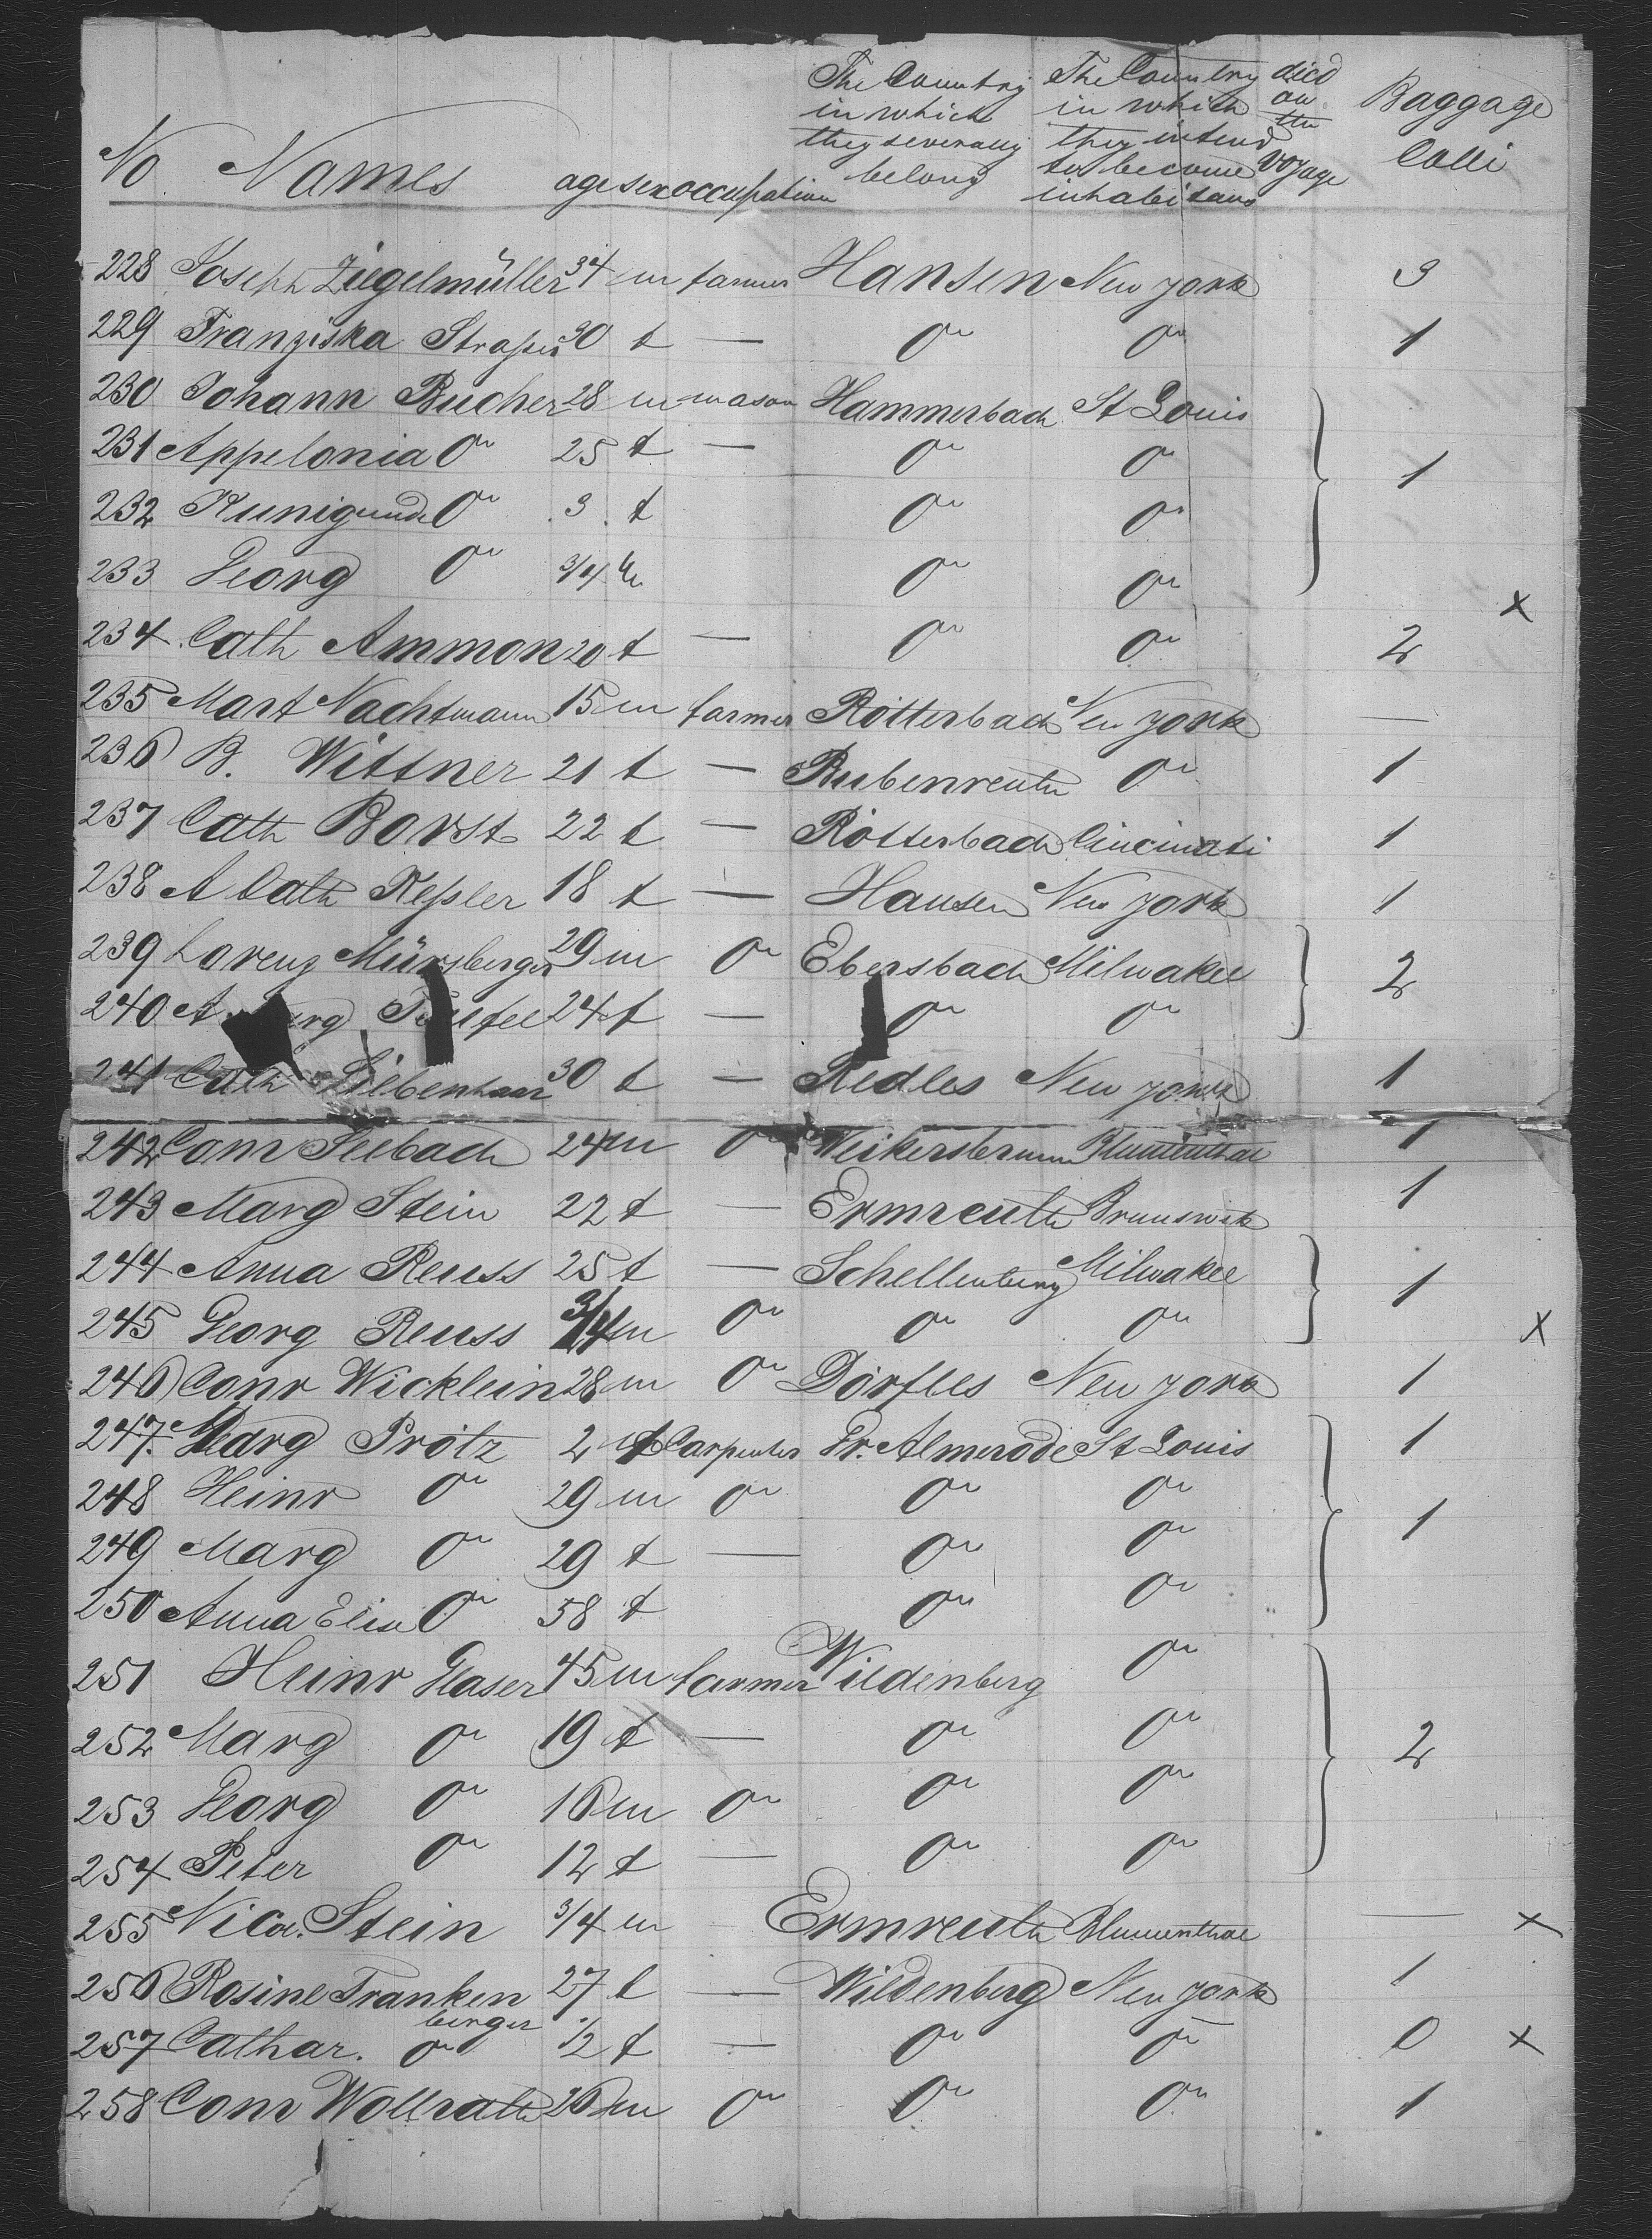 No Names age sex occupation The Country in which they severally belong The Country in which they intend to become inhabitans died on the voyage Baggage Colli
228 Joseph Ziegelmüller 34 m farmer Hansen New York 3
229 Franziska 30 f — do do 1
230 Johann Bucher 28 m mason Hammerbach St Louis
231 Appelonia do 25 f — do do 1
232 Kunigunde do 3 f do do
233 Georg do 3/4 m do do x
234 Cath Ammon 20 f — do do 2
235 Mart Nachtmann 15 m farmer Rötterbach New York —
236 B. Wittner 21 f — Bubenreuth do 1
237 Cath Borst 22 f — Rötterbach Cincinati 1
238 A Cath Keßler 18 f — Hausen New York 1
239 Lorenz 29 m do Ebersbach Milwakee 2
240 A 24 f — do do
241 Cath Siebenhaar 30 f — Redles New York 1
242 Conr Seebach 24 m do 1
243 Marg Stein 22 f — Ermreuth Brunswik 1
244 Anna Reuss 25 f — Schellenberg Milwakee 1
245 Georg Reuss 3/4 m do do do x
246 Conr Wicklein 28 m do Dörfles New York 1
247 Marg Prötz 2 f Carpenter Gr. Almerode St Louis 1
248 Heinr do 29 m do do do
249 Marg do 29 f — do do 1
250 Anna Elise do 58 f do do
251 Heinr Glaser 45 m farmer Wildenberg do
252 Marg do 19 f — do do 2
253 Georg do 16 m do do do
254 Peter do 12 f — do do
255 Nicol. Stein 3/4 m Ermreuth Blumenthal — x
256 Rosine Frankenberger 27 f — Wildenberg New York 1
257 Cathar. do 1/2 f — do do 0 x
258 Conr Wollrath 26 m do do do 1